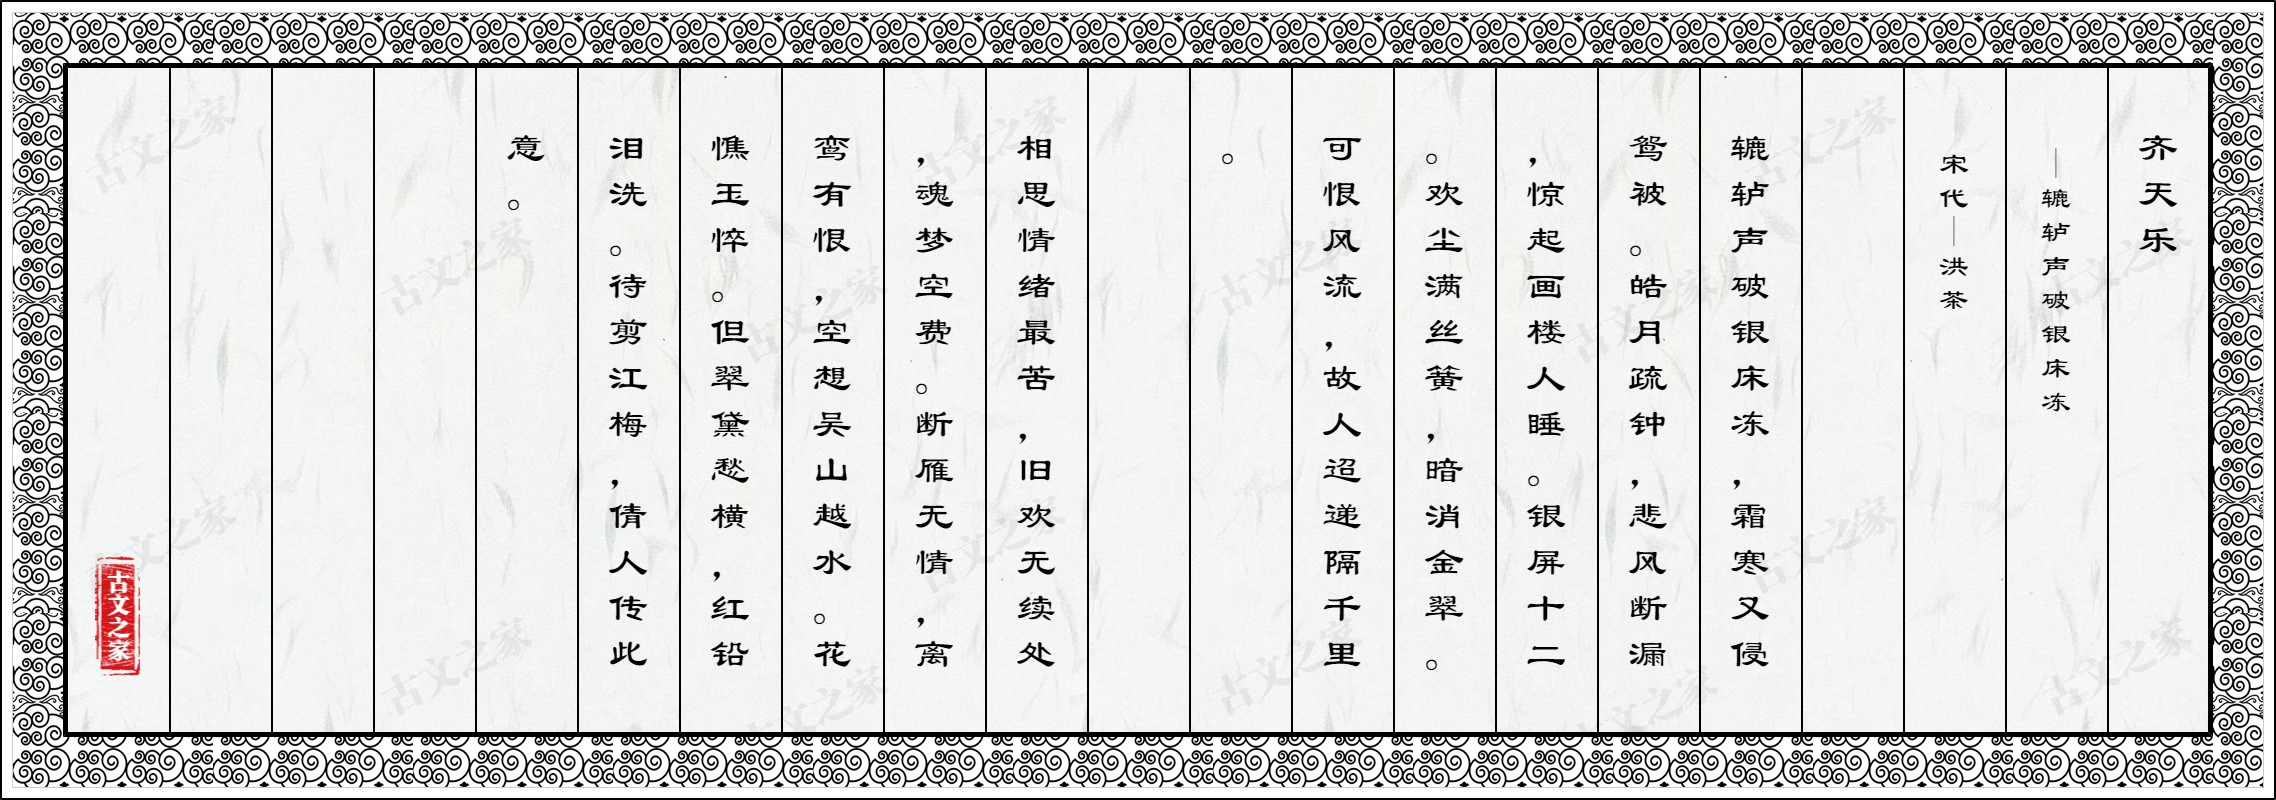 齐天乐
—辘轳声破银床冻
宋代—洪茶
辘轳声破银床冻，霜寒又侵
鸳被。皓月疏钟，悲风断漏
，惊起画楼人睡。银屏十二
。欢尘满丝簧，暗消金翠。
可恨风流，故人迢递隔千里
。
相思情绪最苦，旧欢无续处
，魂梦空费。断雁无情，离
鸾有恨，空想吴山越水。花
憔玉悴。但翠黛愁横，红铅
泪洗。待剪江梅，倩人传此
意。
古文之家